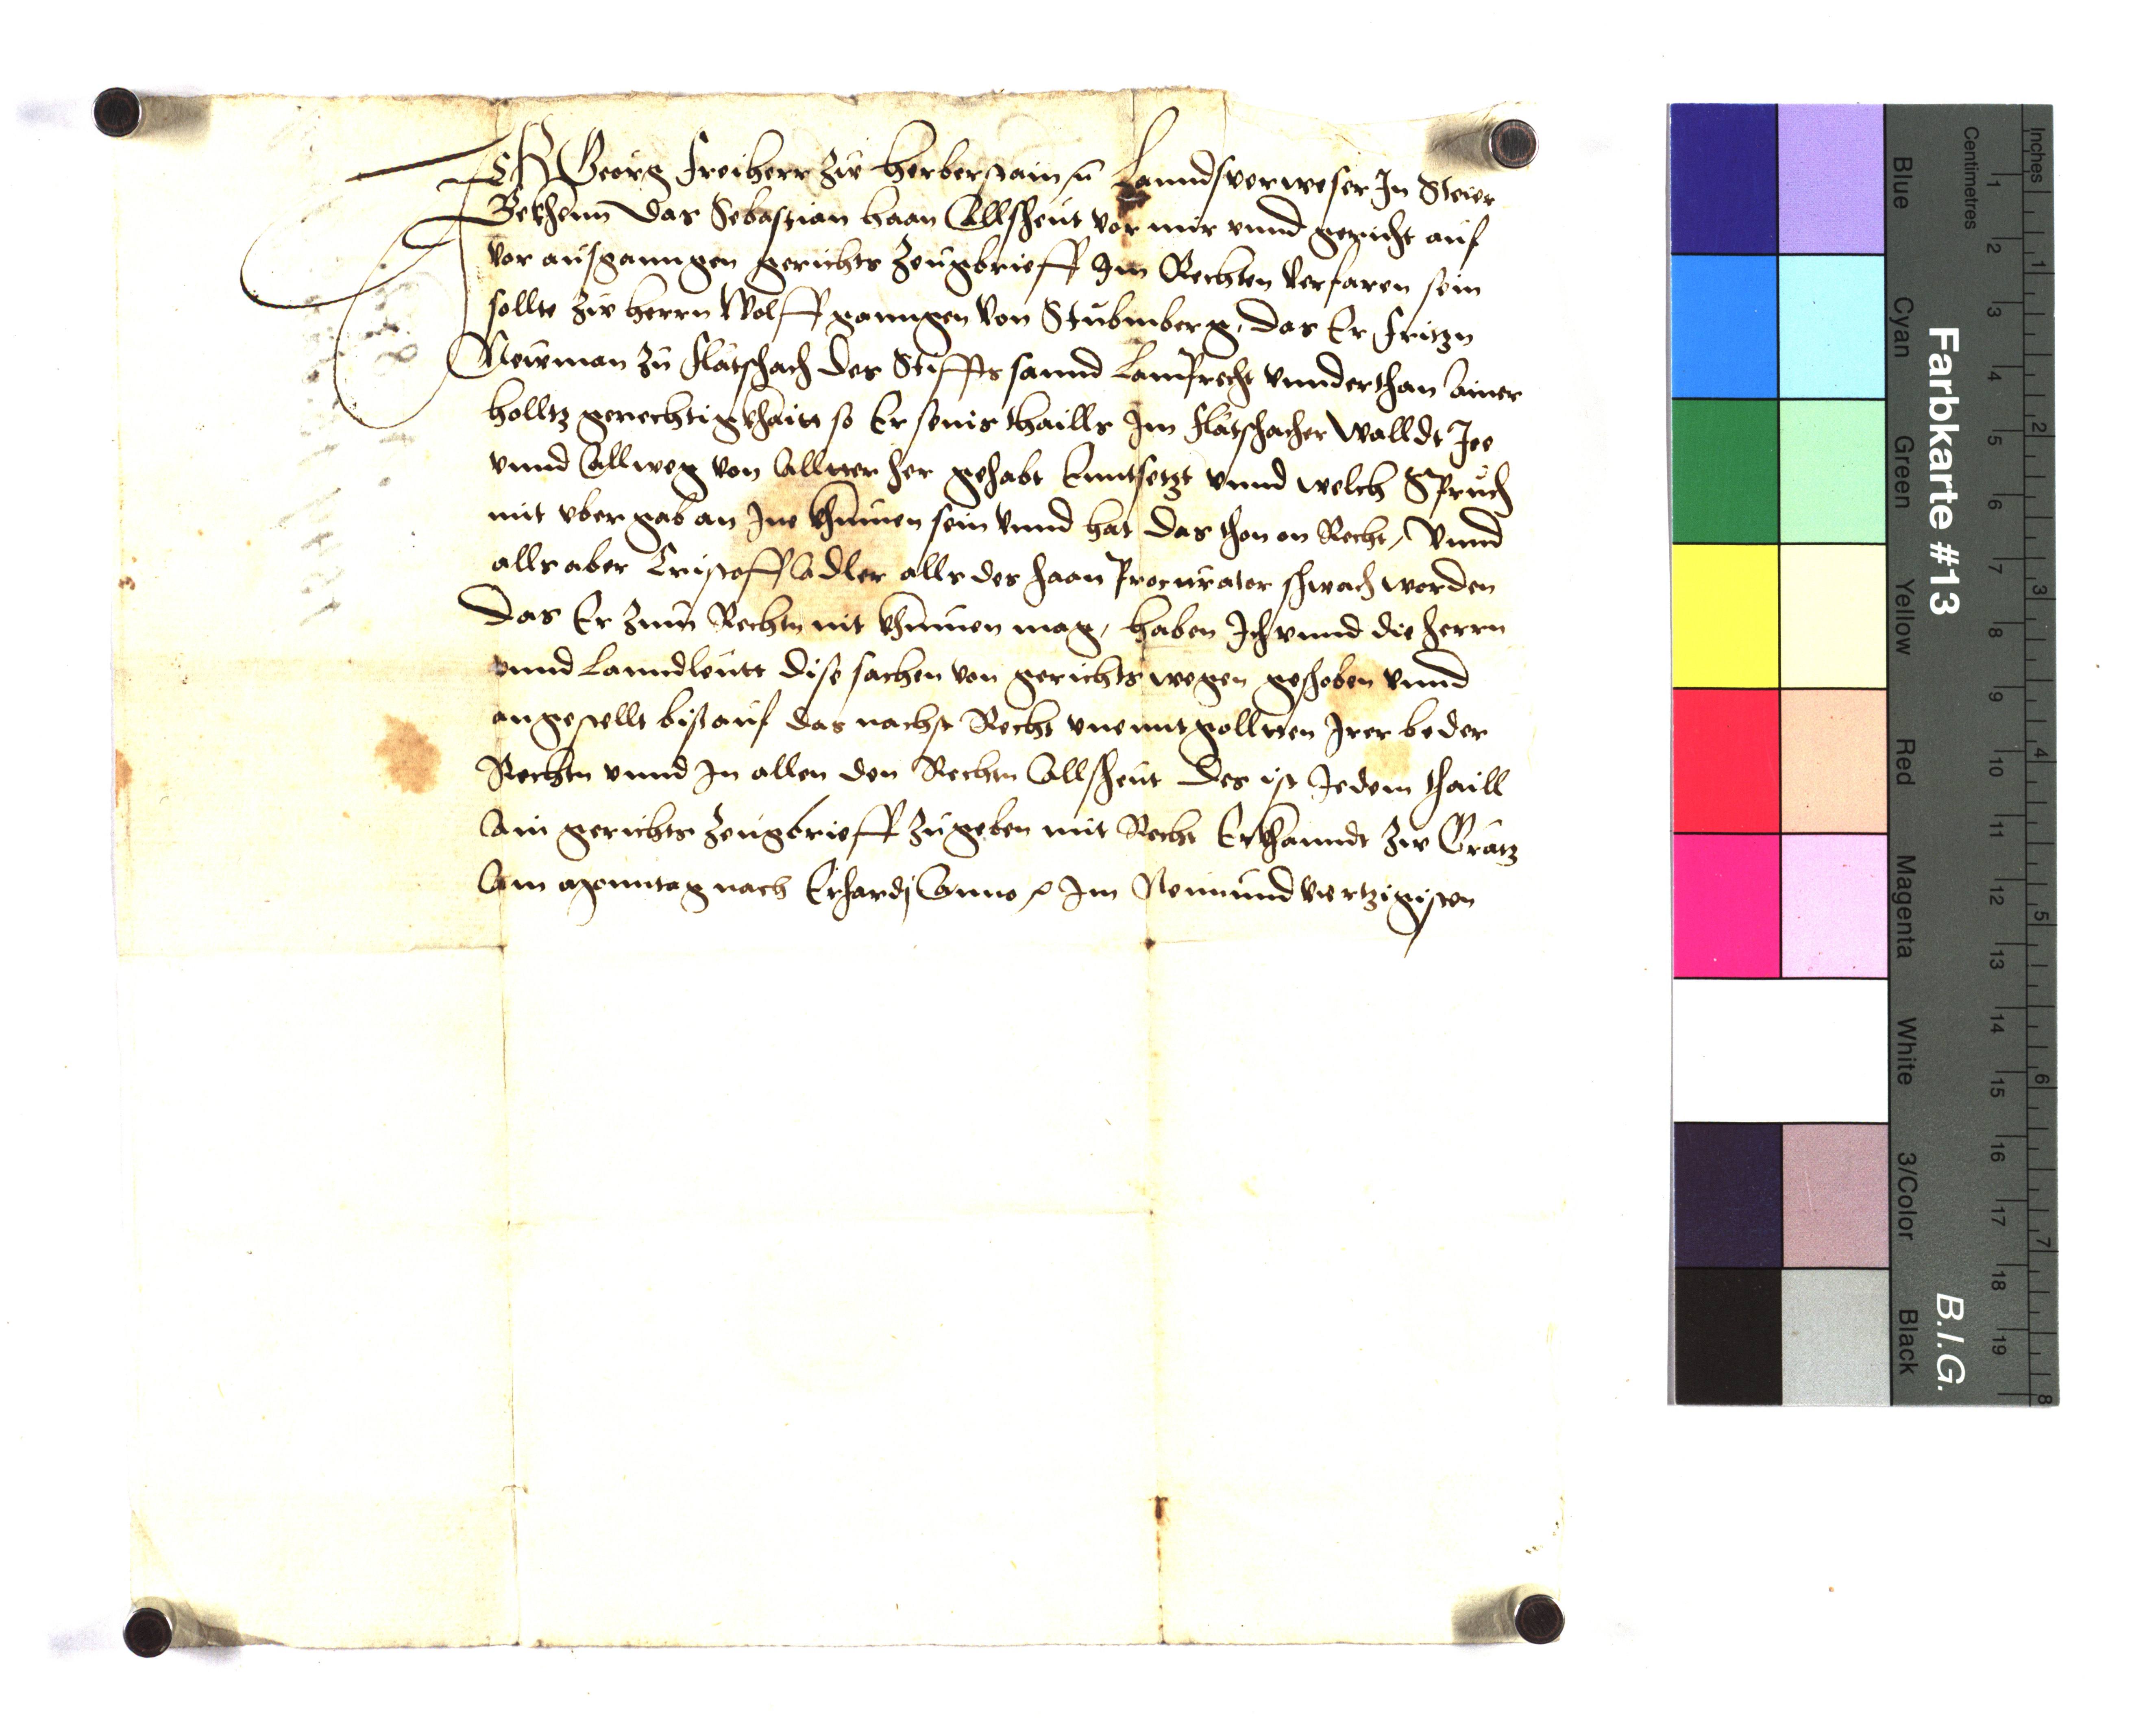 ICh Georg freiherr zw herberstain etc Lanndsverweser In Steier
Bekhenn das Sebastian haan Allsheut vor mir vnnd gericht auf
vor ausganngen gerichts Zeugbrieff Im Rechten verfaren sein
sollte zw herrn Wolffganngen von Stubmberg, das Er fritzn
Newman zu flätschach des Stiffts sannd Lamprecht vnnderthan Ainer
holltz gerechtigkhaitt so Er seins thaills Im flätschacher walldt Jee
vnnd Allweg von Allter her gehabt Enntsetzt vnnd welch Spruch
mit vbergab an Ine khumen sein vnnd hat das thon on Recht, Vnnd
alls aber Cristoff Adler alls des haan Procurator schwach worden
Das Er zum Rechtn nit khumen mag, haben Ich vnnd die herrn
vnnd Lanndleutt dise sachen von gerichts wegen geshoben vnnd
angestellt biß auf das nachst Recht vnenntgollten Irer beder
Rechtn vnnd In allen den Rechtn Allsheut Des ist Jedem thaill
Ain gerichts Zeugbrieff zugeben mit Recht Erkhanndt Zw Grätz
Am Monntag nach Erhardj Anno etc Im Neunundviertzigisten
Farbkarte #13
B.I.G.
Centimetres
Inches
Blue
Cyan
Green
Yellow
Red
Magenta
White
3/Color
Black
1 2 3 4 5 6 7 8 9 10 11 12 13 14 15 16 17 18 19
1 2 3 4 5 6 7 8